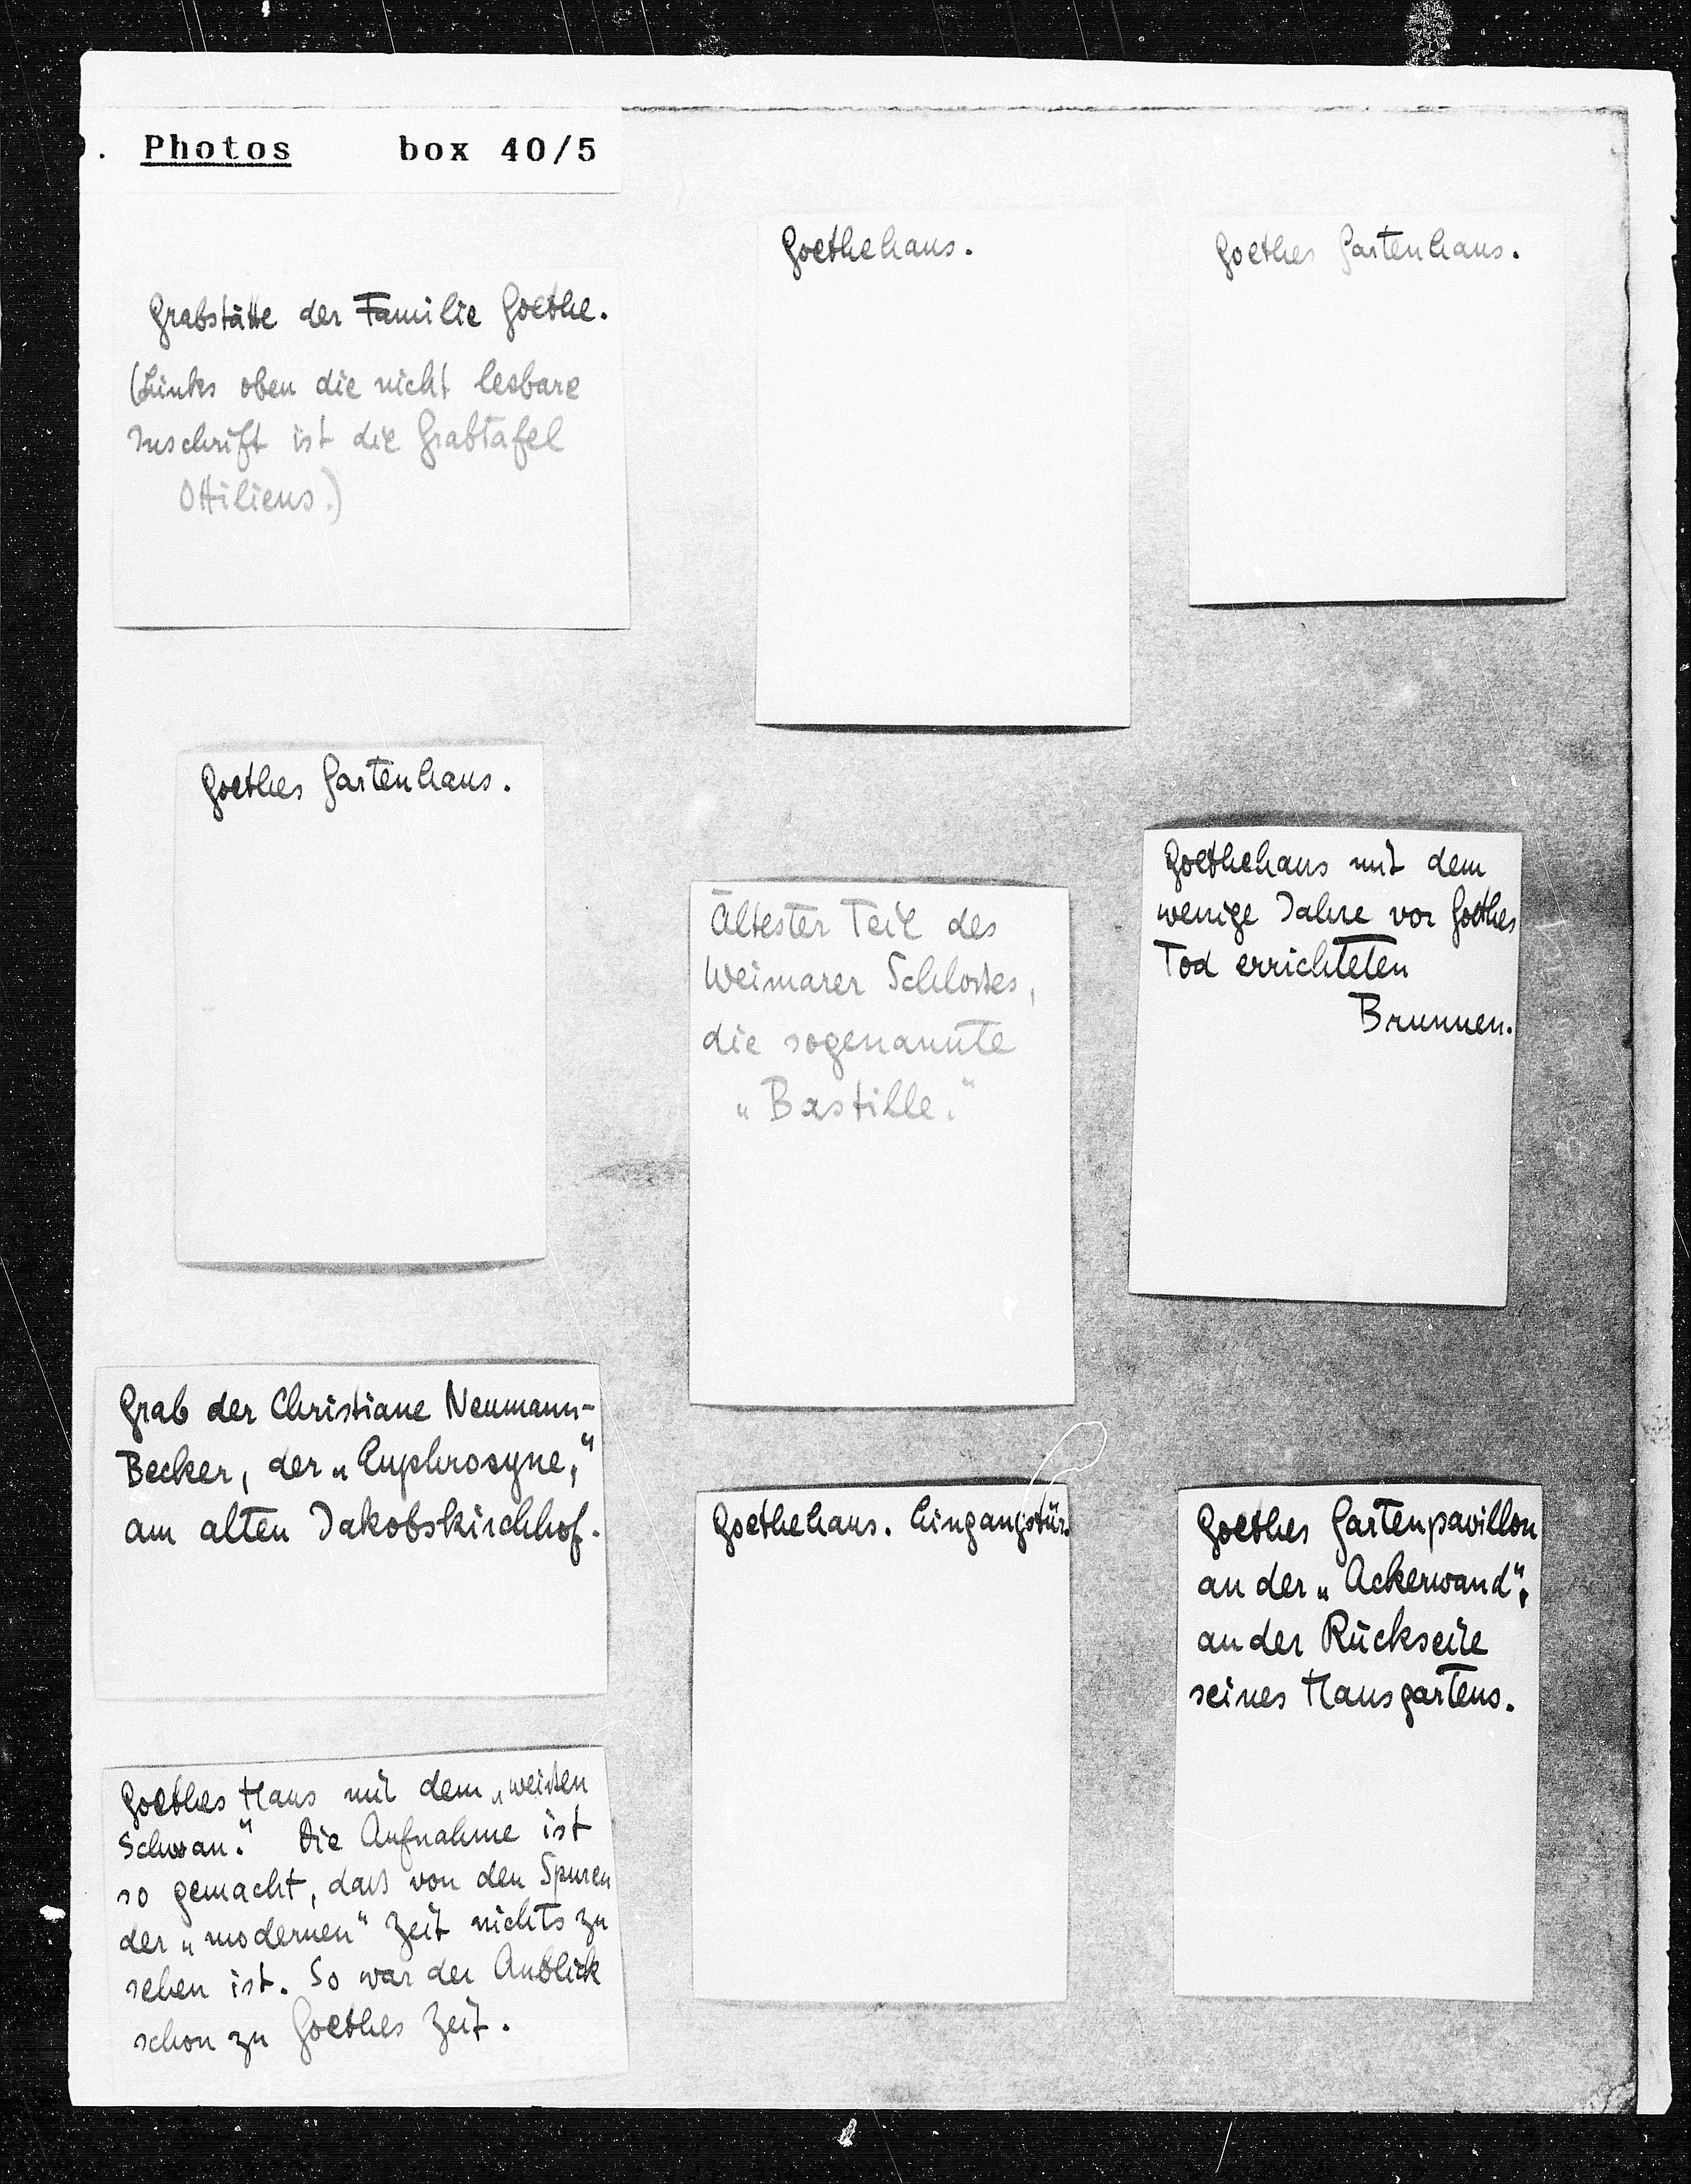 . Photos box 40/5
Grabstätte der Familie Goethe.
(Links oben die nicht lesbare
Inschrift ist die Grabtafel
Ottiliens.)
Goethehaus.
Goethes Gartenhaus.
Goethes Gartenhaus.
Ältester Teil des
Weimarer Schlosses,
die sogenannte
„Bastille."
Goethehaus mit dem
wenige Jahre vor Goethes
Tod errichteten
Brunnen.
Grab der Christiane Neumann-
Becker, der „Euphrosyne,"
am alten Jakobskirchhof.
Goethehaus. Eingangstür.
Goethes Gartenpavillon
an der „Ackerwand",
an der Rückseite
seines Hausgartens.
Goethes Haus mit dem „weißen
Schwan." Die Aufnahme ist
so gemacht, daß von den Spuren
der „modernen" Zeit nichts zu
sehen ist. So war der Anblick
schon zu Goethes Zeit.